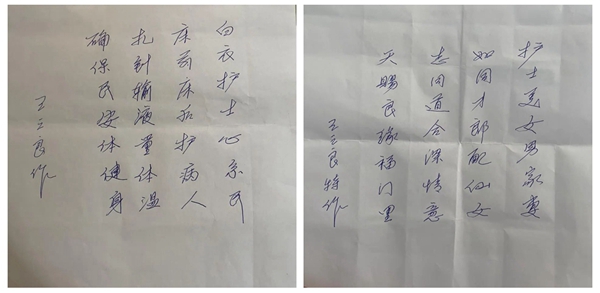 白衣护士心系民
床前床后护病人
扎针输液量体温
确保民安体健身
王立良作
护士美女男家妻
如同才郎配仙女
志同道合深情意
天赐良缘福门里
王立良特作